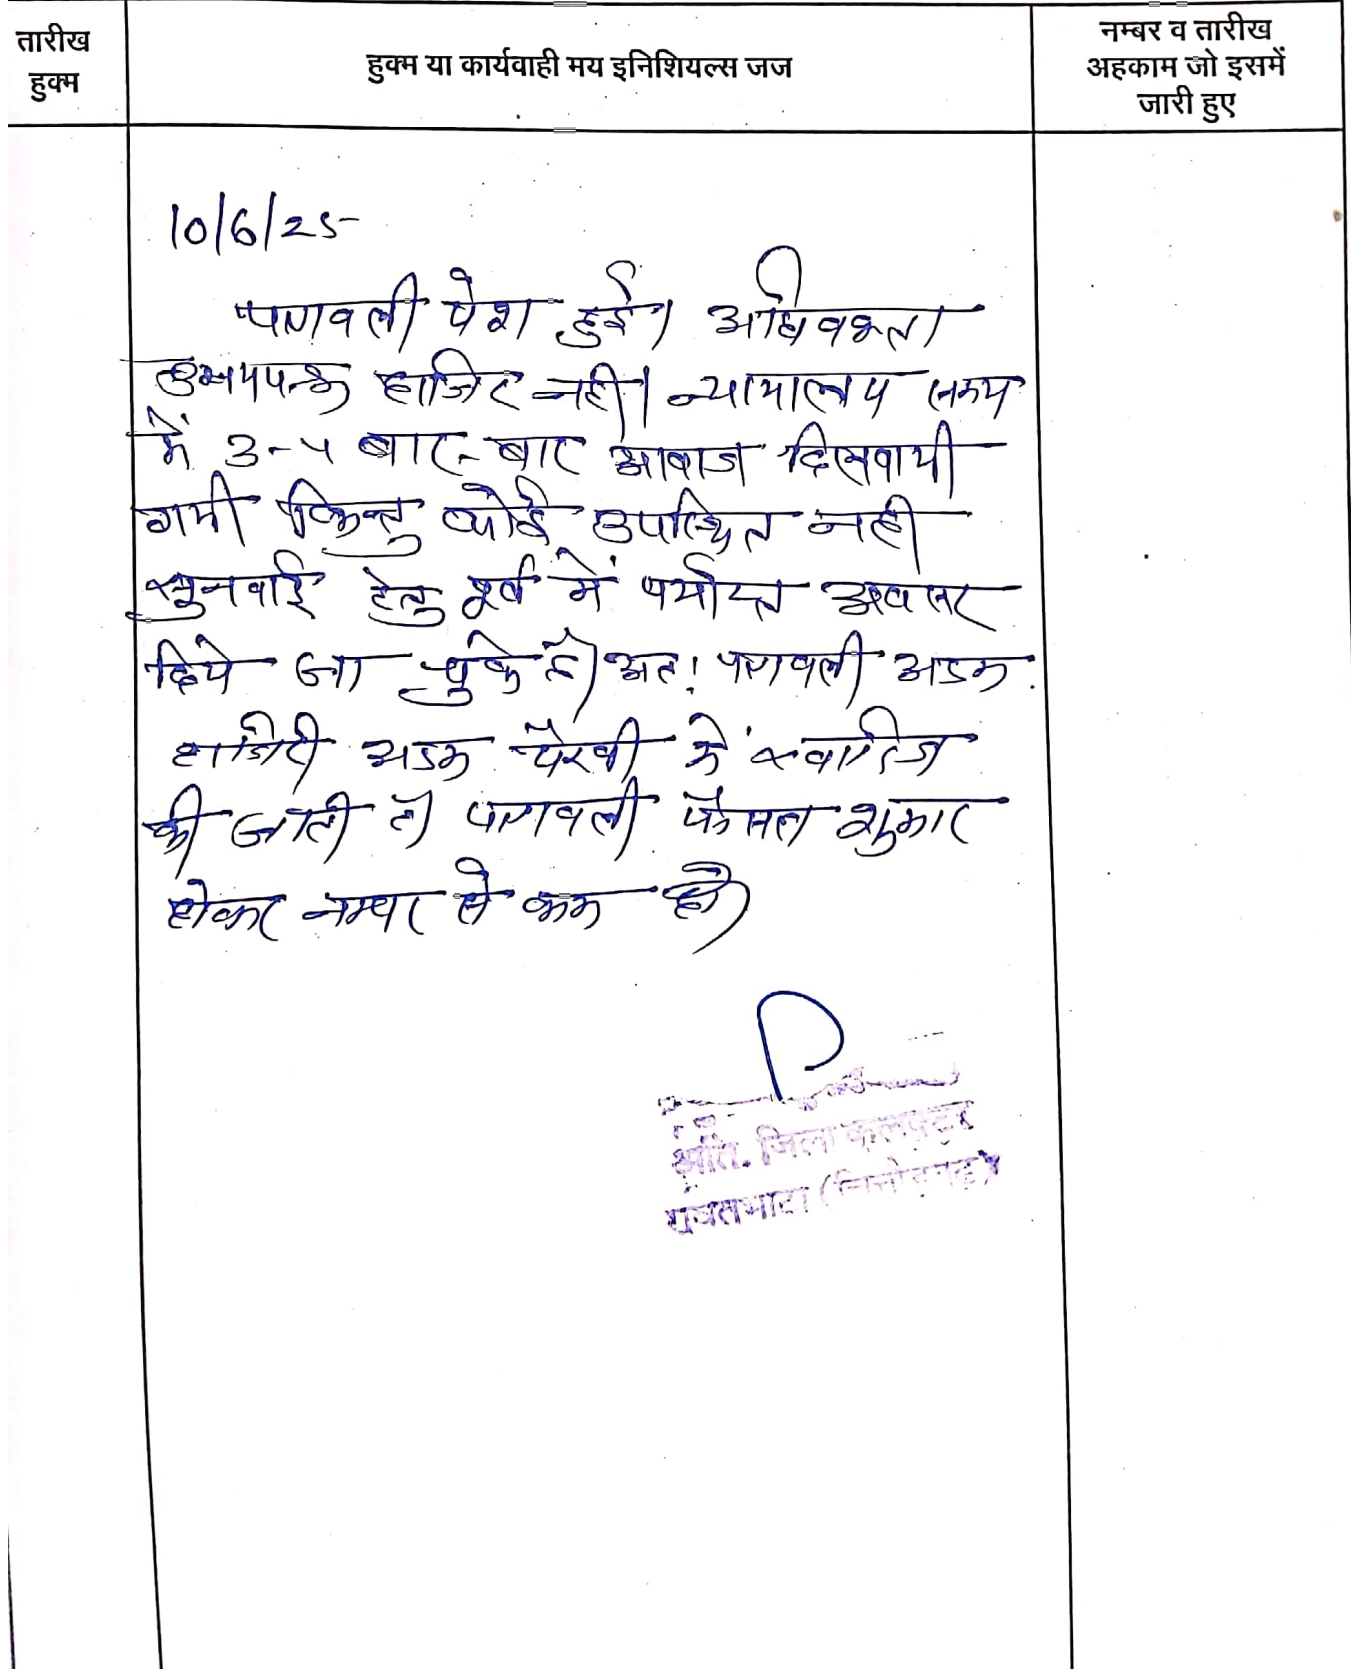 तारीख
हुक्म
हुक्म या कार्यवाही मय इनिशियल्स जज
नम्बर व तारीख
अहकाम जो इसमें
जारी हुए
10/6/25
पत्रावली पेश हुई। अधिवक्ता
उभयपक्ष हाजिर नही। न्यायालय समय
में 3-4 बार-बार आवाज दिलवायी
गयी किन्तु कोई उपस्थित नही
सुनवाई हेतु पूर्व में पर्याप्त अवसर
दिये जा चुके है। अतः पत्रावली अदम
हाजिरी अदम पैरवी में खारिज
की जाती है। पत्रावली फैसल शुमार
होकर नम्बर से कम हो।
अति. जिला कलक्टर
रावतभाटा (चित्तौड़गढ़)